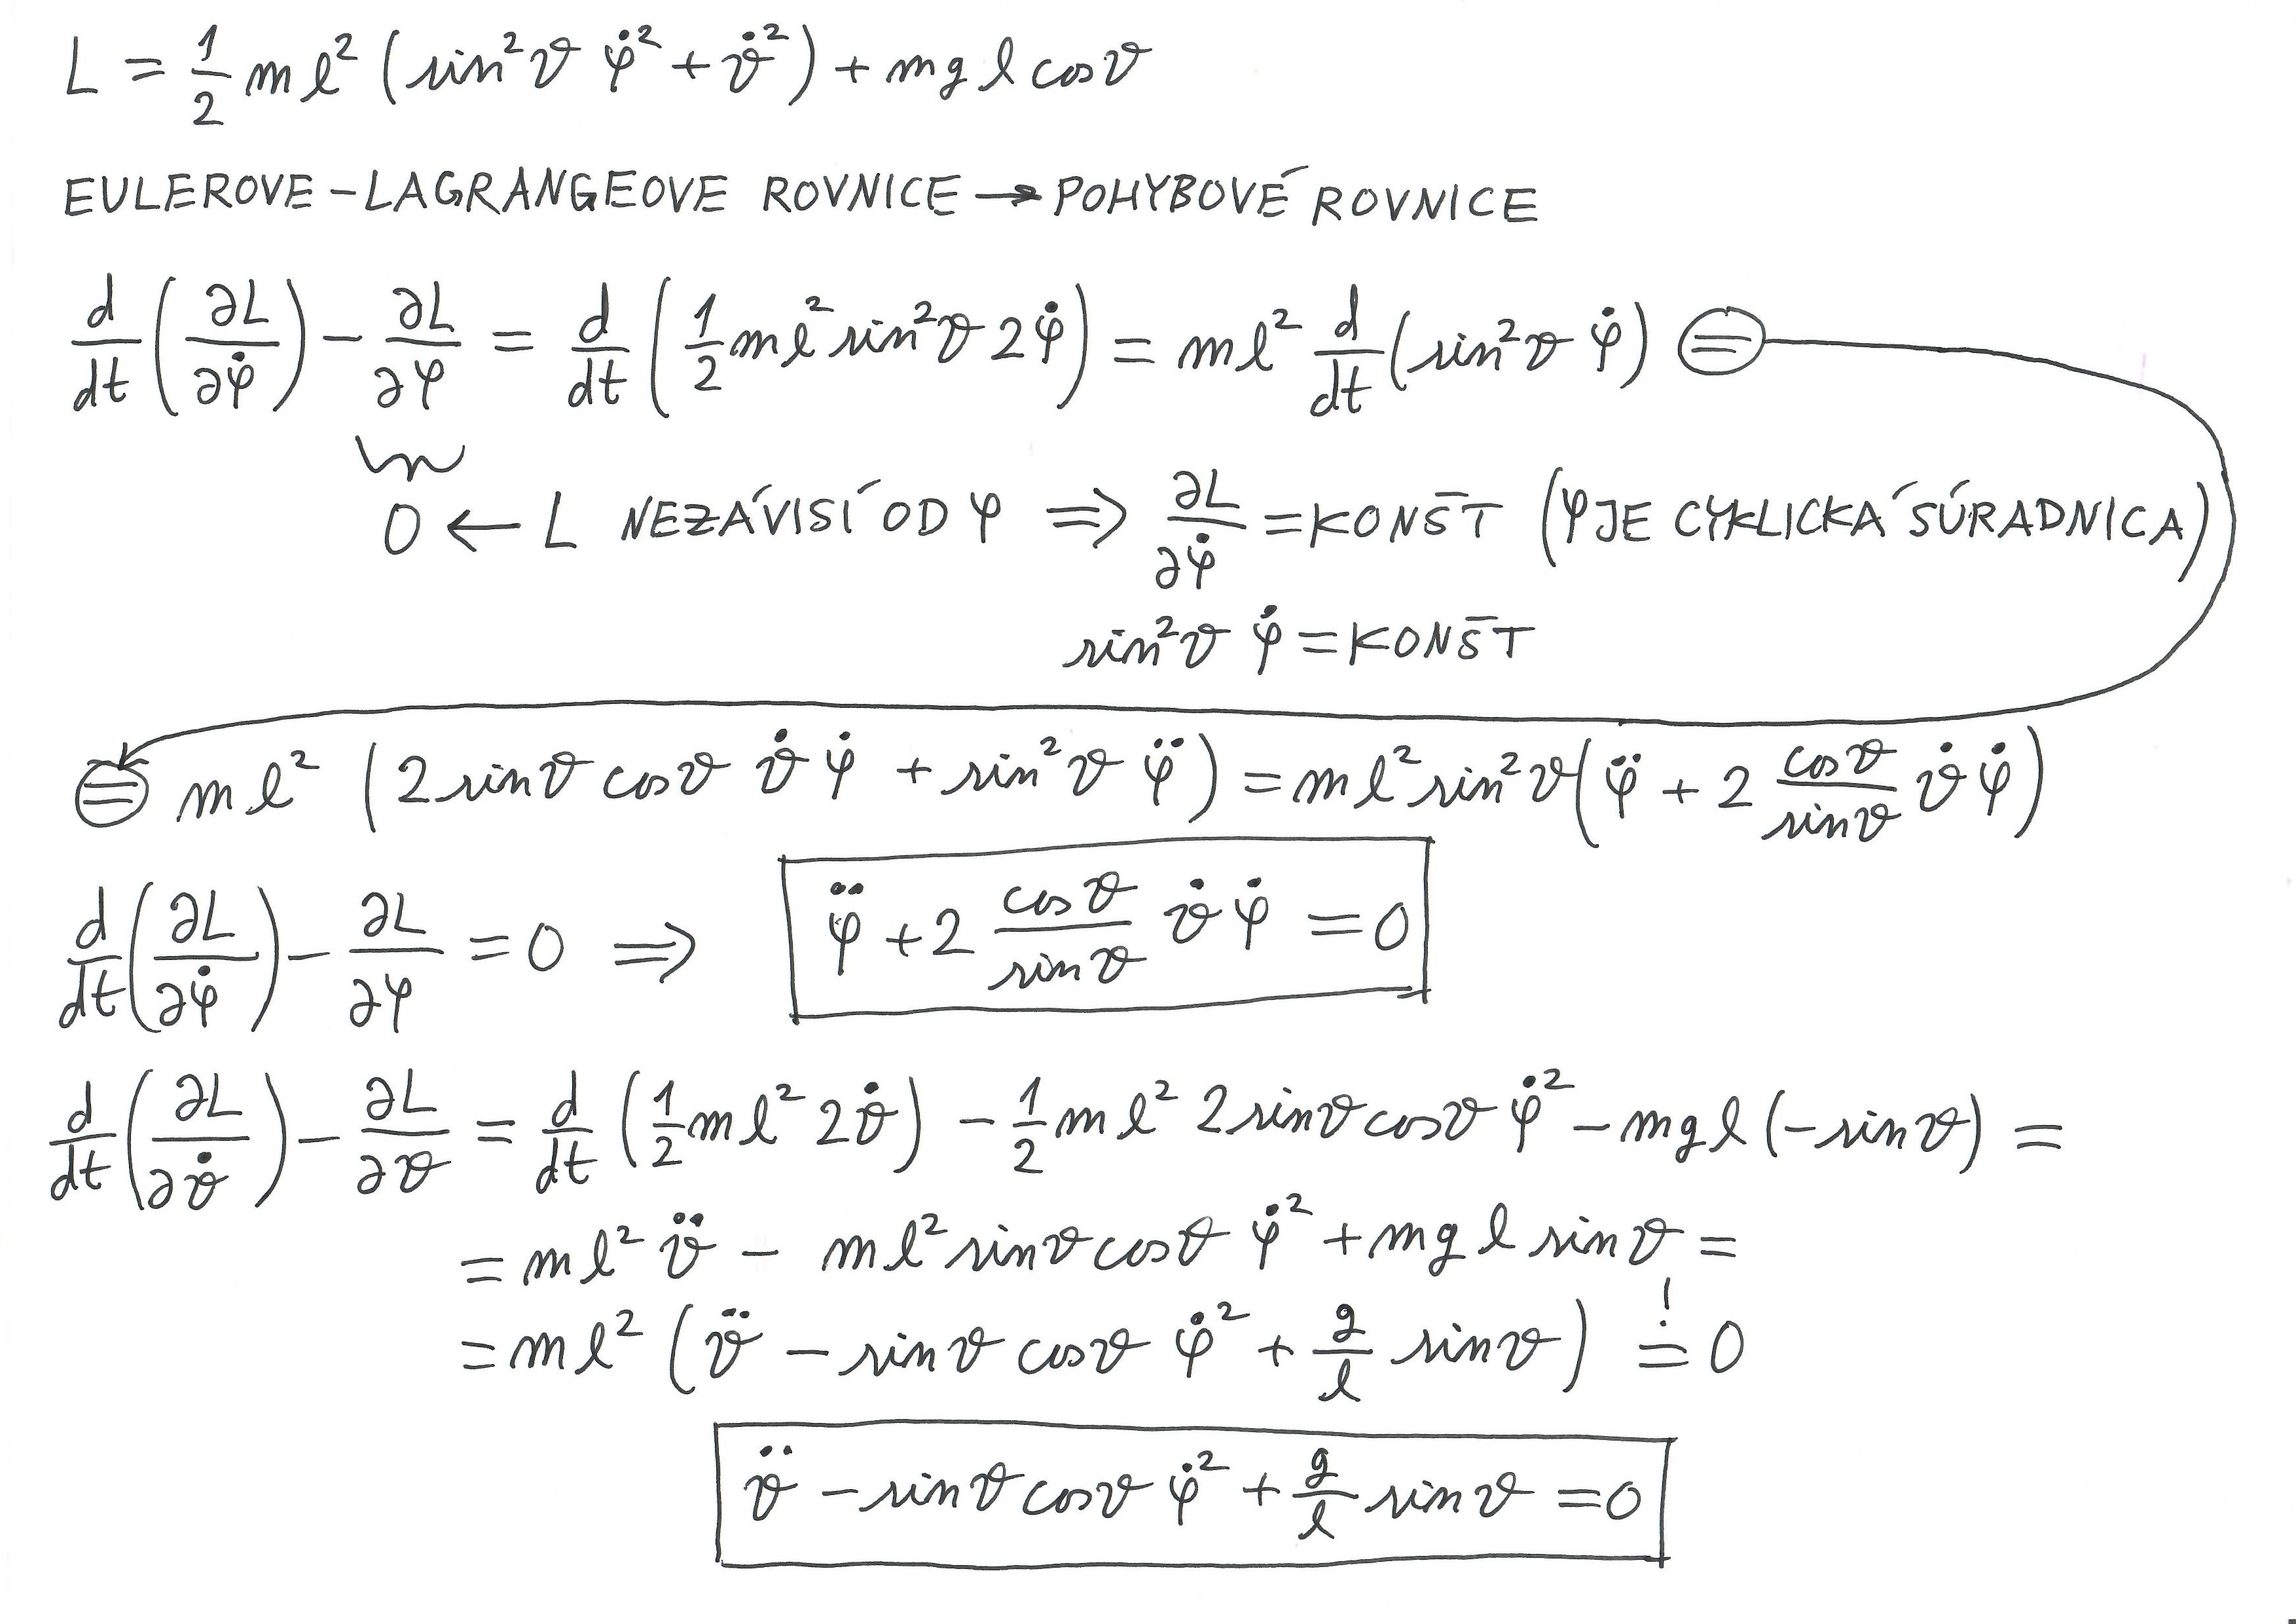 L = 1/2 m l² (sin²ϑ φ̇² + ϑ̇²) + m g l cosϑ
EULEROVE – LAGRANGEOVE ROVNICE → POHYBOVÉ ROVNICE
d/dt (∂L/∂φ̇) − ∂L/∂φ = d/dt (1/2 m l² sin²ϑ 2φ̇) = m l² d/dt (sin²ϑ φ̇) ⊜
0 ← L NEZÁVISÍ OD φ ⇒ ∂L/∂φ̇ = KONŠT (φ JE CYKLICKÁ SÚRADNICA)
sin²ϑ φ̇ = KONŠT
⊜ m l² (2 sinϑ cosϑ ϑ̇ φ̇ + sin²ϑ φ̈) = m l² sin²ϑ (φ̈ + 2 cosϑ/sinϑ ϑ̇ φ̇)
d/dt (∂L/∂φ̇) − ∂L/∂φ = 0 ⇒ φ̈ + 2 cosϑ/sinϑ ϑ̇ φ̇ = 0
d/dt (∂L/∂ϑ̇) − ∂L/∂ϑ = d/dt (1/2 m l² 2ϑ̇) − 1/2 m l² 2 sinϑ cosϑ φ̇² − m g l (−sinϑ) =
= m l² ϑ̈ − m l² sinϑ cosϑ φ̇² + m g l sinϑ =
= m l² (ϑ̈ − sinϑ cosϑ φ̇² + g/l sinϑ) =! 0
ϑ̈ − sinϑ cosϑ φ̇² + g/l sinϑ = 0